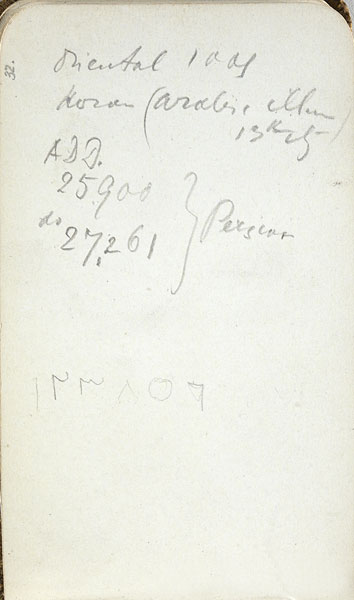 32.
Oriental 1009
Koran (Arabic, illum
13th cty
ADD.
25,900
do
27,261 } Persian